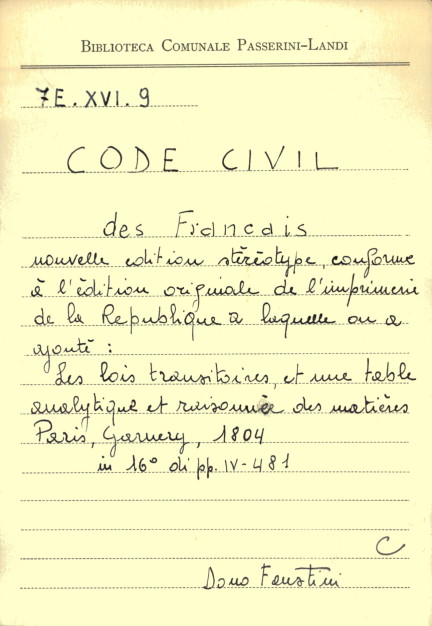 BIBLIOTECA COMUNALE PASSERINI-LANDI
7E.XVI.9
CODE CIVIL
des Francais
nouvelle edition stéréotype, conforme
à l'édition originale de l'imprimerie
de la Republique a laquelle on a
ajouté :
Les lois transitoires, et une table
analytique et raisonnée des matières
Paris, Garnery, 1804
in 16° di pp. IV-481
C
Dono Faustini